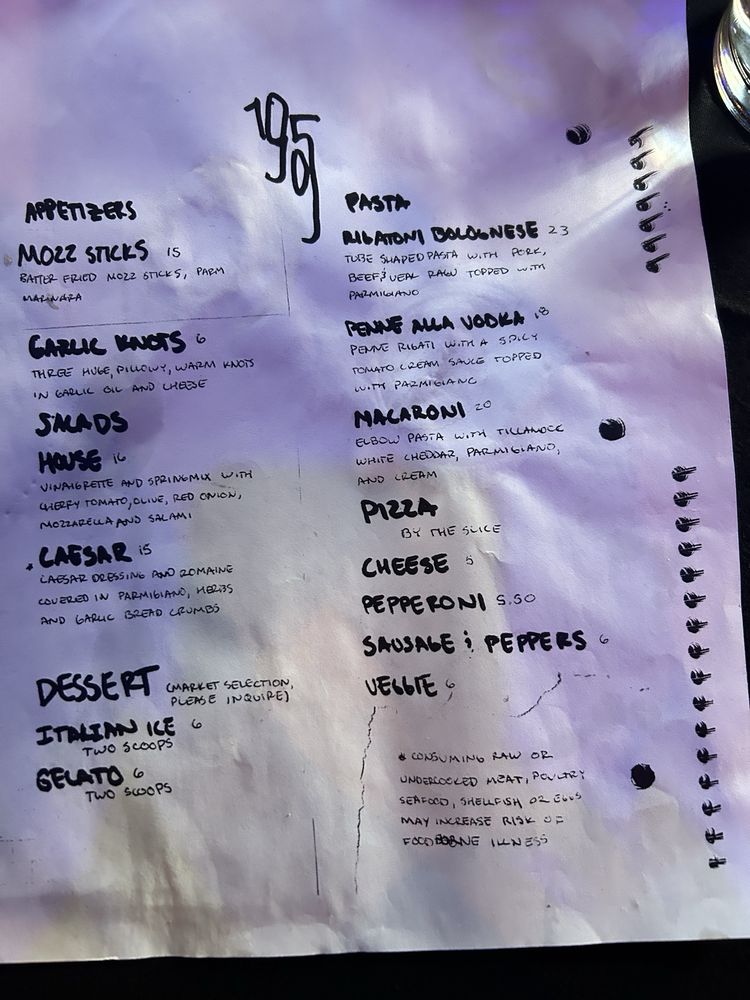 195
9
APPETIZERS
MOZZ STICKS 15
BATTER FRIED MOZZ STICKS, PARM
MARINARA
GARLIC KNOTS 6
THREE HUGE, PILLOWY, WARM KNOTS
IN GARLIC OIL AND CHEESE
SALADS
HOUSE 16
VINAIGRETTE AND SPRINGMIX WITH
CHERRY TOMATO, OLIVE, RED ONION,
MOZZARELLA AND SALAMI
* CAESAR 15
CAESAR DRESSING AND ROMAINE
COVERED IN PARMIGIANO, HERBS
AND GARLIC BREAD CRUMBS
DESSERT (MARKET SELECTION,
PLEASE INQUIRE)
ITALIAN ICE 6
TWO SCOOPS
GELATO 6
TWO SCOOPS
PASTA
RIGATONI BOLOGNESE 23
TUBE SHAPED PASTA WITH PORK,
BEEF & VEAL RAGU TOPPED WITH
PARMIGIANO
PENNE ALLA VODKA 18
PENNE RIGATI WITH A SPICY
TOMATO CREAM SAUCE TOPPED
WITH PARMIGIANO
MACARONI 20
ELBOW PASTA WITH TILLAMOOK
WHITE CHEDDAR, PARMIGIANO,
AND CREAM
PIZZA
BY THE SLICE
CHEESE 5
PEPPERONI 5.50
SAUSAGE & PEPPERS 6
VEGGIE 6
* CONSUMING RAW OR
UNDERCOOKED MEAT, POULTRY
SEAFOOD, SHELLFISH OR EGGS
MAY INCREASE RISK OF
FOODBORNE ILLNESS